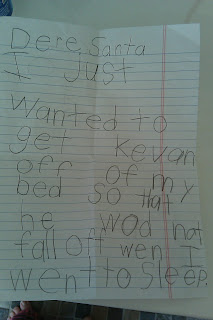 Dere, Santa
I Just
Wanted to
get Kevan
off of my
bed so that
he wod not
fall off wen I
went to Sleep.